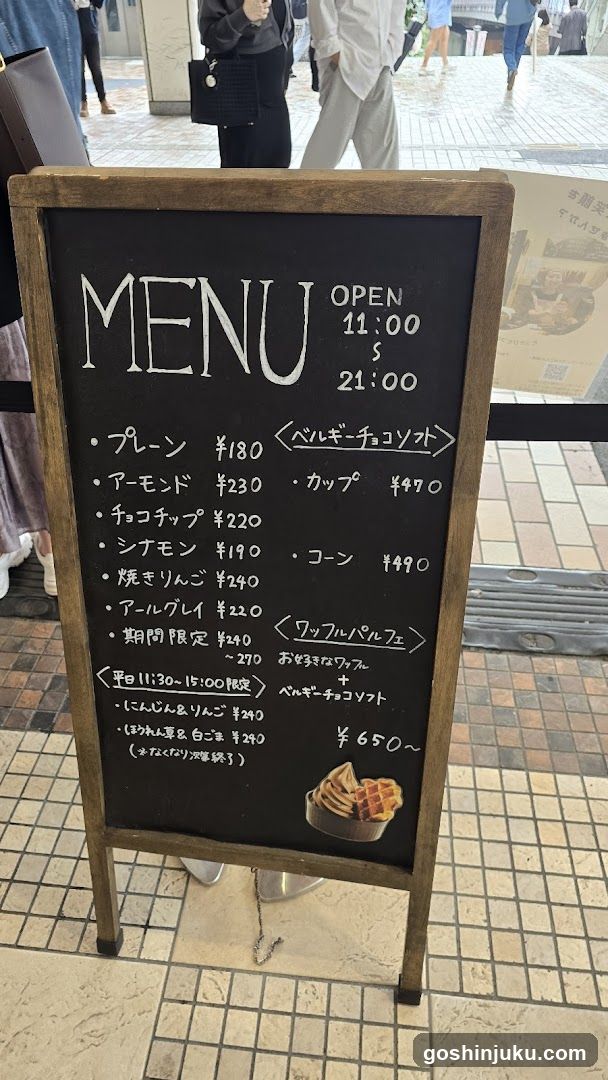 MENU
OPEN
11:00
~
21:00
・プレーン ¥180
・アーモンド ¥230
・チョコチップ ¥220
・シナモン ¥190
・焼きりんご ¥240
・アールグレイ ¥220
・期間限定 ¥240
~270
〈平日11:30~15:00限定〉
・にんじん&りんご ¥240
・ほうれん草&白ごま ¥240
(※なくなり次第終了)
〈ベルギーチョコソフト〉
・カップ ¥470
・コーン ¥490
〈ワッフルパルフェ〉
お好きなワッフル
+
ベルギーチョコソフト
¥650~
goshinjuku.com